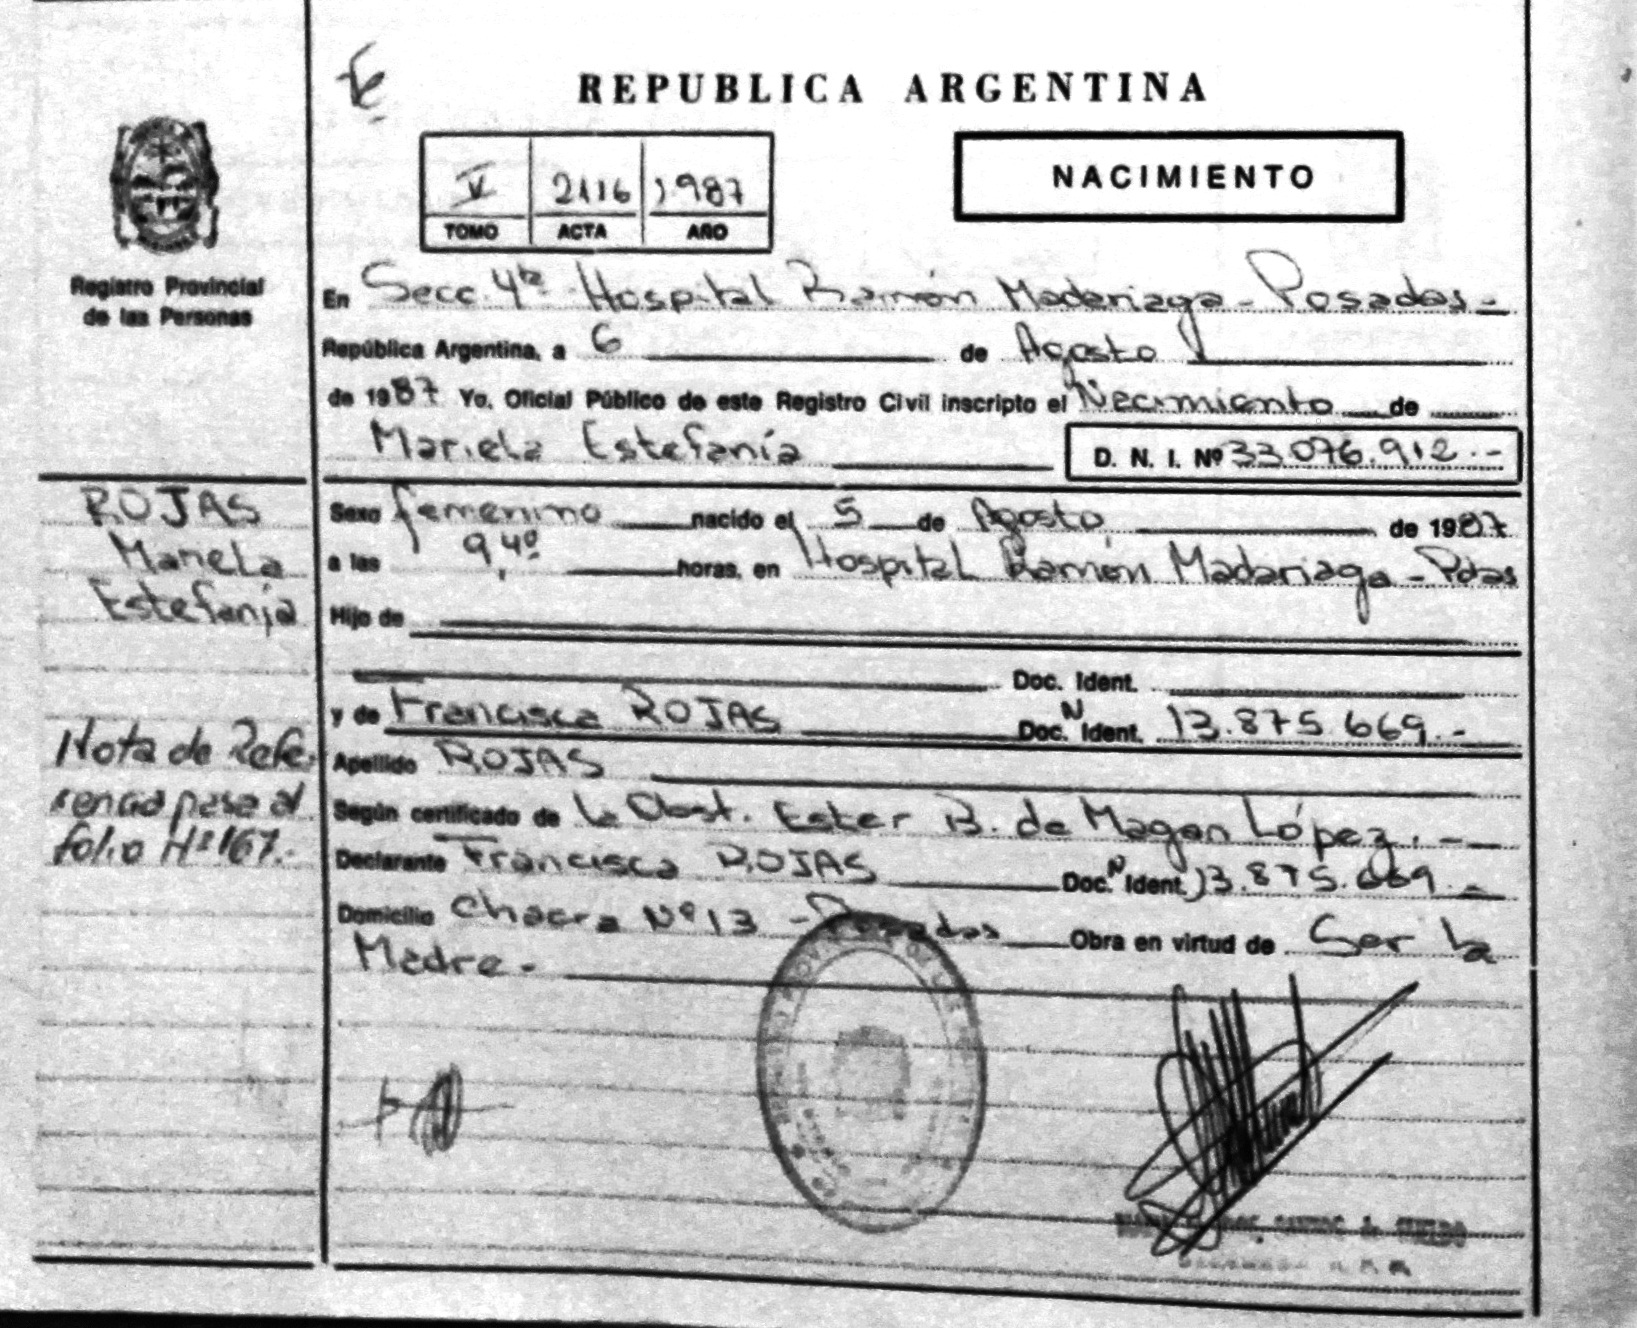 REPUBLICA ARGENTINA
NACIMIENTO
V 2116 1.987
TOMO ACTA AÑO
Registro Provincial
de las Personas
En Secc. 4ta Hospital Ramón Madariaga - Posadas -
República Argentina, a 6 de Agosto
de 1987 Yo, Oficial Público de este Registro Civil inscripto el Nacimiento de
Mariela Estefanía D. N. I. Nº 33.076.912.-
ROJAS
Mariela
Estefanía
Sexo femenino nacido el 5 de Agosto de 1987
a las 9,40 horas, en Hospital Ramón Madariaga - Pdas
Hijo de
Doc. Ident.
y de Francisca ROJAS Doc. N Ident. 13.875.669.-
Apellido ROJAS
Nota de Refe-
rencia pasa al
folio Nº 167.-
Según certificado de la Obst. Ester B. de Magan López.-
Declarante Francisca ROJAS Doc. N Ident. 13.875.669.-
Domicilio Chacra Nº 13 - Posadas Obra en virtud de Ser la
Madre.-